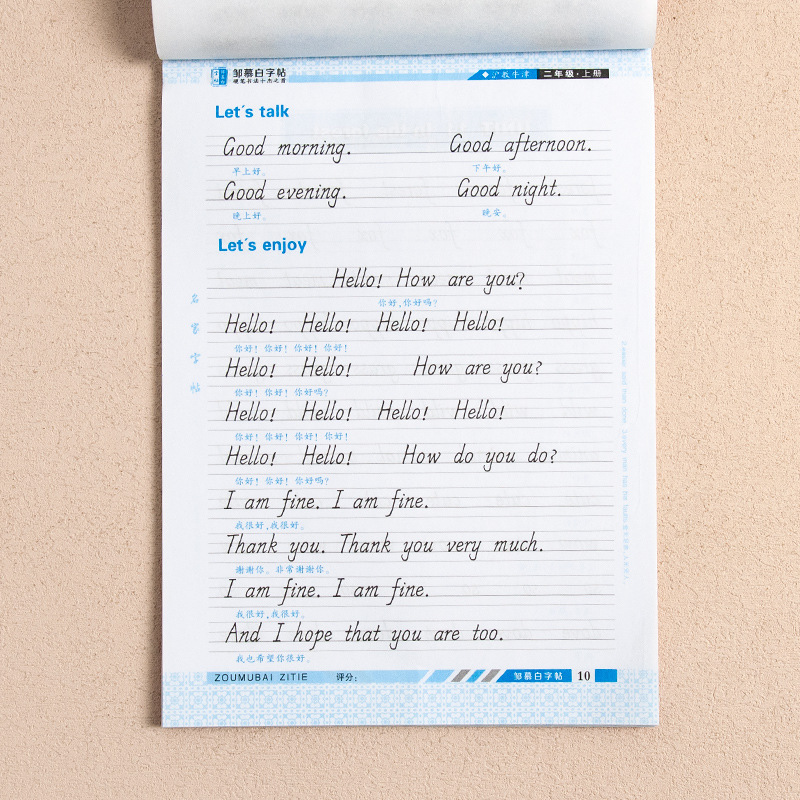 邹慕白字帖
硬笔书法十杰之首
沪教牛津 二年级·上册
Let's talk
Good morning. Good afternoon.
早上好。 下午好。
Good evening. Good night.
晚上好。 晚安。
Let's enjoy
Hello! How are you?
你好,你好吗?
Hello! Hello! Hello! Hello!
你好! 你好! 你好! 你好!
Hello! Hello! How are you?
你好! 你好! 你好吗?
Hello! Hello! Hello! Hello!
你好! 你好! 你好! 你好!
Hello! Hello! How do you do?
你好! 你好! 你好吗?
I am fine. I am fine.
我很好,我很好。
Thank you. Thank you very much.
谢谢你。非常谢谢你。
I am fine. I am fine.
我很好,我很好。
And I hope that you are too.
我也希望你很好。
名家字帖
ZOUMUBAI ZITIE 评分: 邹慕白字帖 10